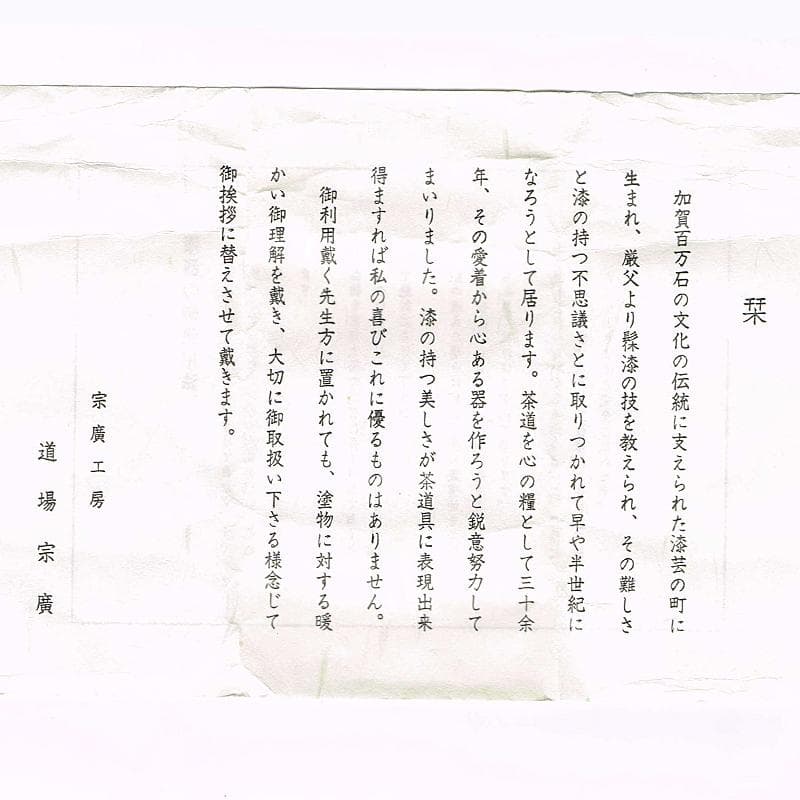 栞
加賀百万石の文化の伝統に支えられた漆芸の町に
生まれ、厳父より髹漆の技を教えられ、その難しさ
と漆の持つ不思議さとに取りつかれて早や半世紀に
なろうとして居ります。茶道を心の糧として三十余
年、その愛着から心ある器を作ろうと鋭意努力して
まいりました。漆の持つ美しさが茶道具に表現出来
得ますれば私の喜びこれに優るものはありません。
御利用戴く先生方に置かれても、塗物に対する暖
かい御理解を戴き、大切に御取扱い下さる様念じて
御挨拶に替えさせて戴きます。
宗廣工房
道場宗廣